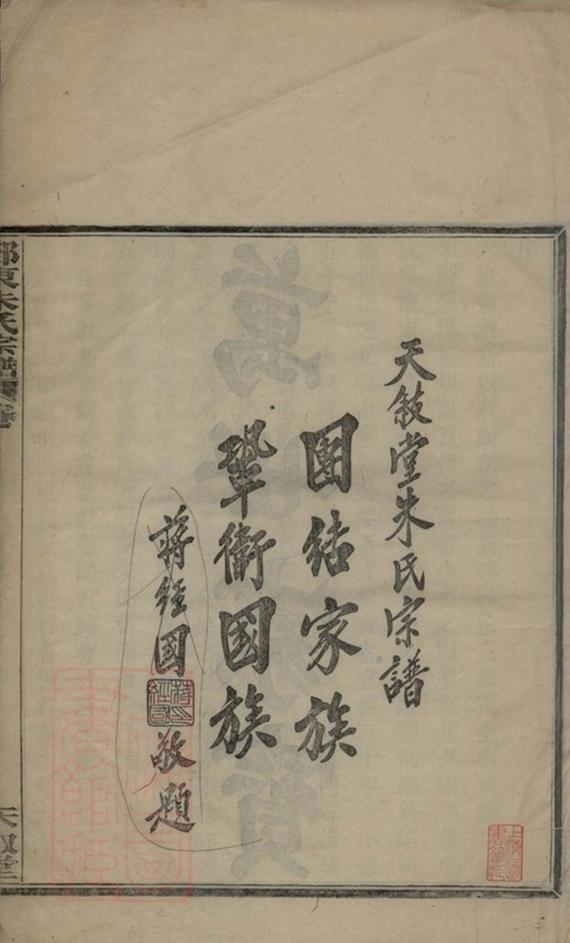 天敍堂朱氏宗譜
團结家族
鞏衛國族
蔣經國
敬題
朱氏宗譜